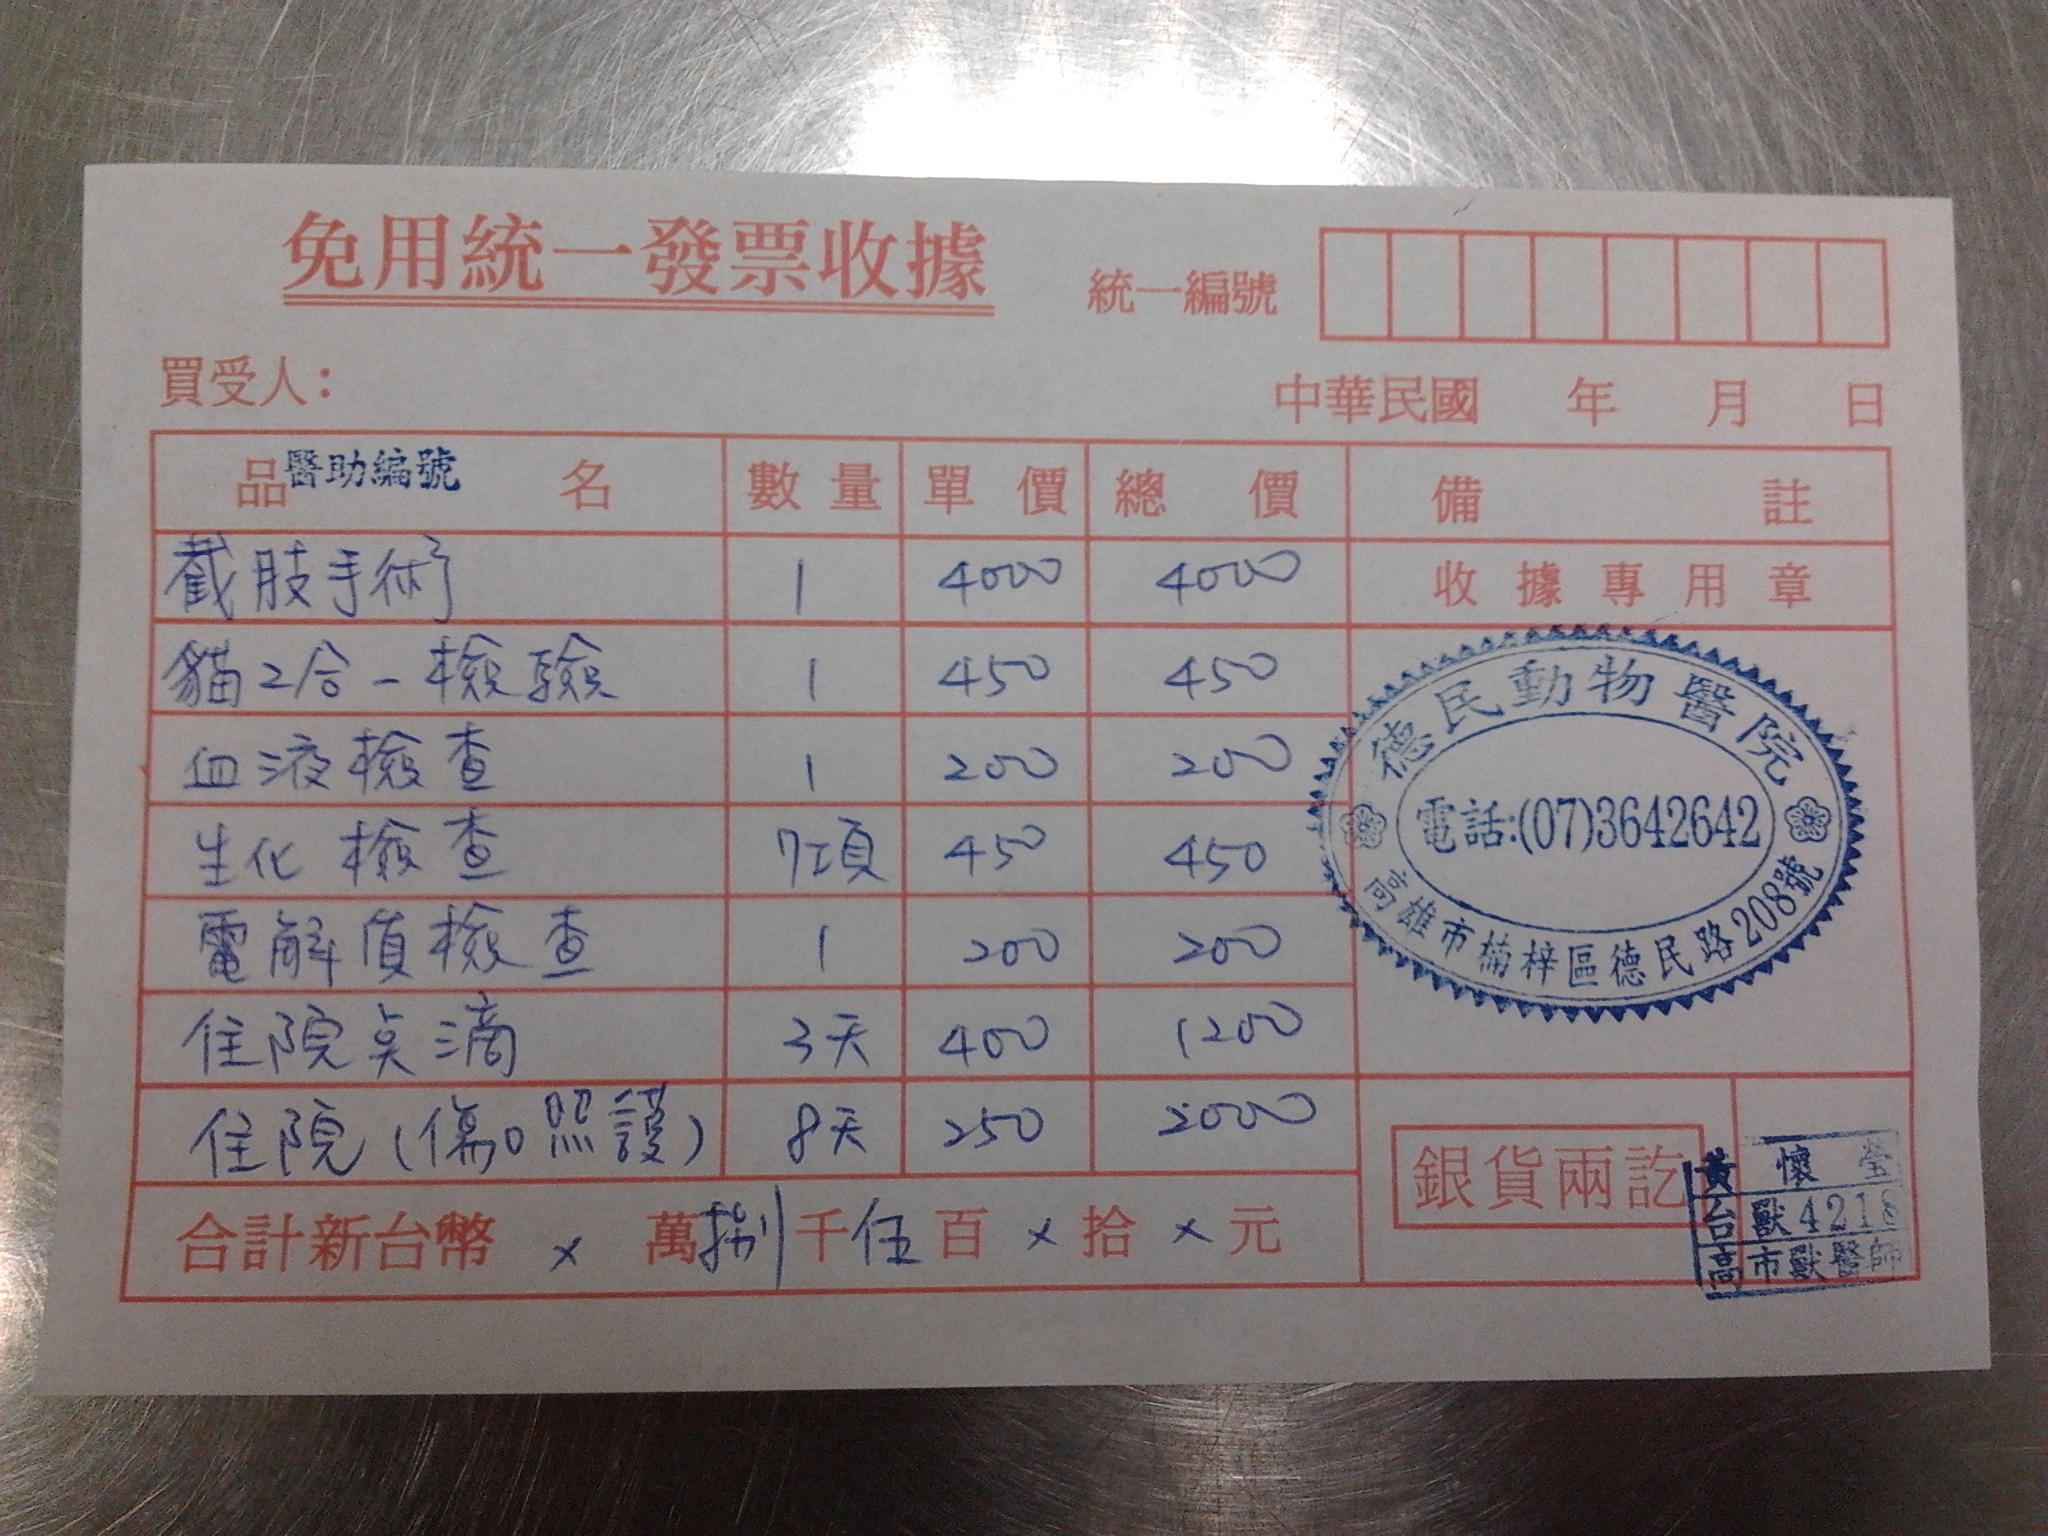 免用統一發票收據
統一編號
買受人：
中華民國 年 月 日
品 名 數量 單價 總價 備註
醫助編號
截肢手術 1 4000 4000 收據專用章
貓2合一檢驗 1 450 450
血液檢查 1 200 200
生化檢查 7項 450 450
電解質檢查 1 200 200
住院点滴 3天 400 1200
住院(傷口照護) 8天 250 2000
德民動物醫院
電話:(07)3642642
高雄市楠梓區德民路208號
銀貨兩訖
合計新台幣 × 萬捌千伍百×拾×元
黃懷瑩
台獸4218
高市獸醫師